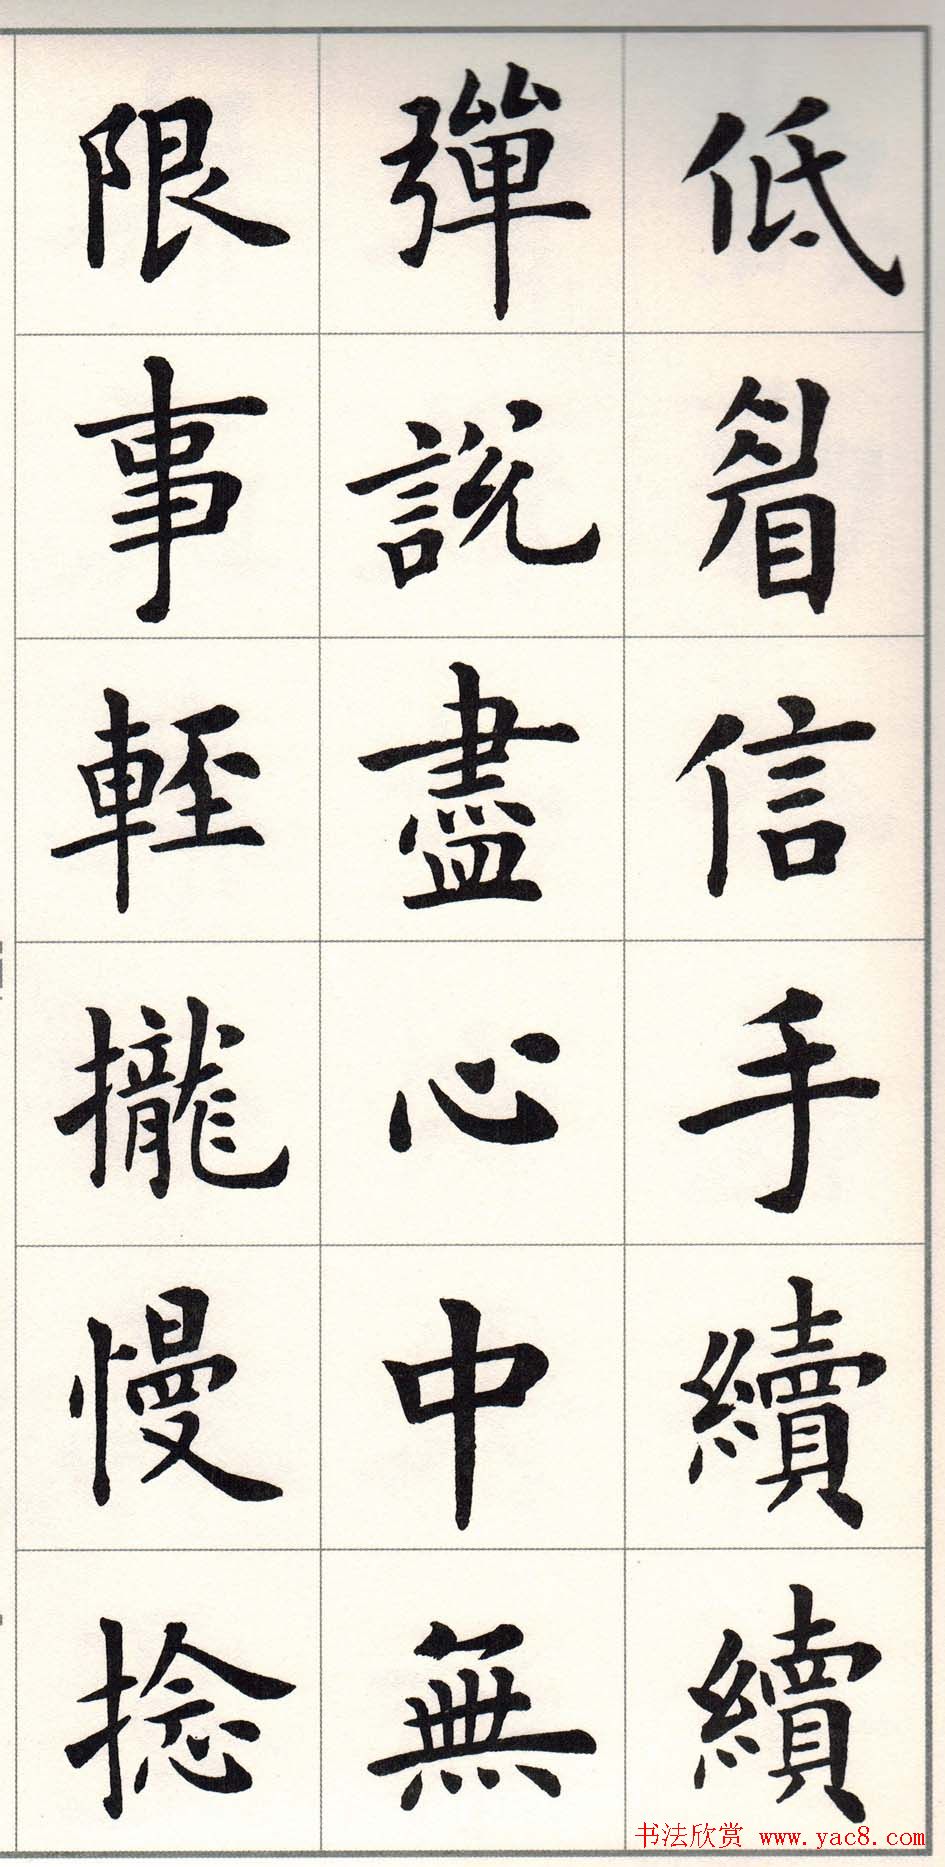 低眉信手續續
彈說盡心中無
限事輕攏慢捻
书法欣赏 www.yac8.com